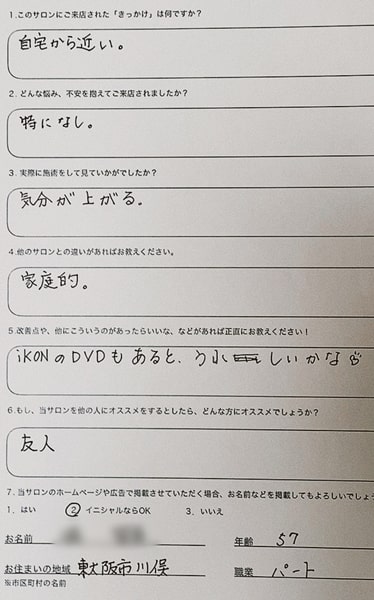 1.このサロンにご来店された「きっかけ」は何ですか?
自宅から近い。
2. どんな悩み、不安を抱えてご来店されましたか?
特になし。
3. 実際に施術をして見ていかがでしたか?
気分が上がる。
4.他のサロンとの違いがあればお教えください。
家庭的。
5.改善点や、他にこういうのがあったらいいな、などがあれば正直にお教えください!
iKONのDVDもあると、うれしいかな
6.もし、当サロンを他の人にオススメをするとしたら、どんな方にオススメでしょうか?
友人
7.当サロンのホームページや広告で掲載させていただく場合、お名前などを掲載してもよろしいでしょ
1. はい ② イニシャルならOK 3. いいえ
お名前 年齢 57
お住まいの地域 東大阪市川俣 職業 パート
※市区町村の名前